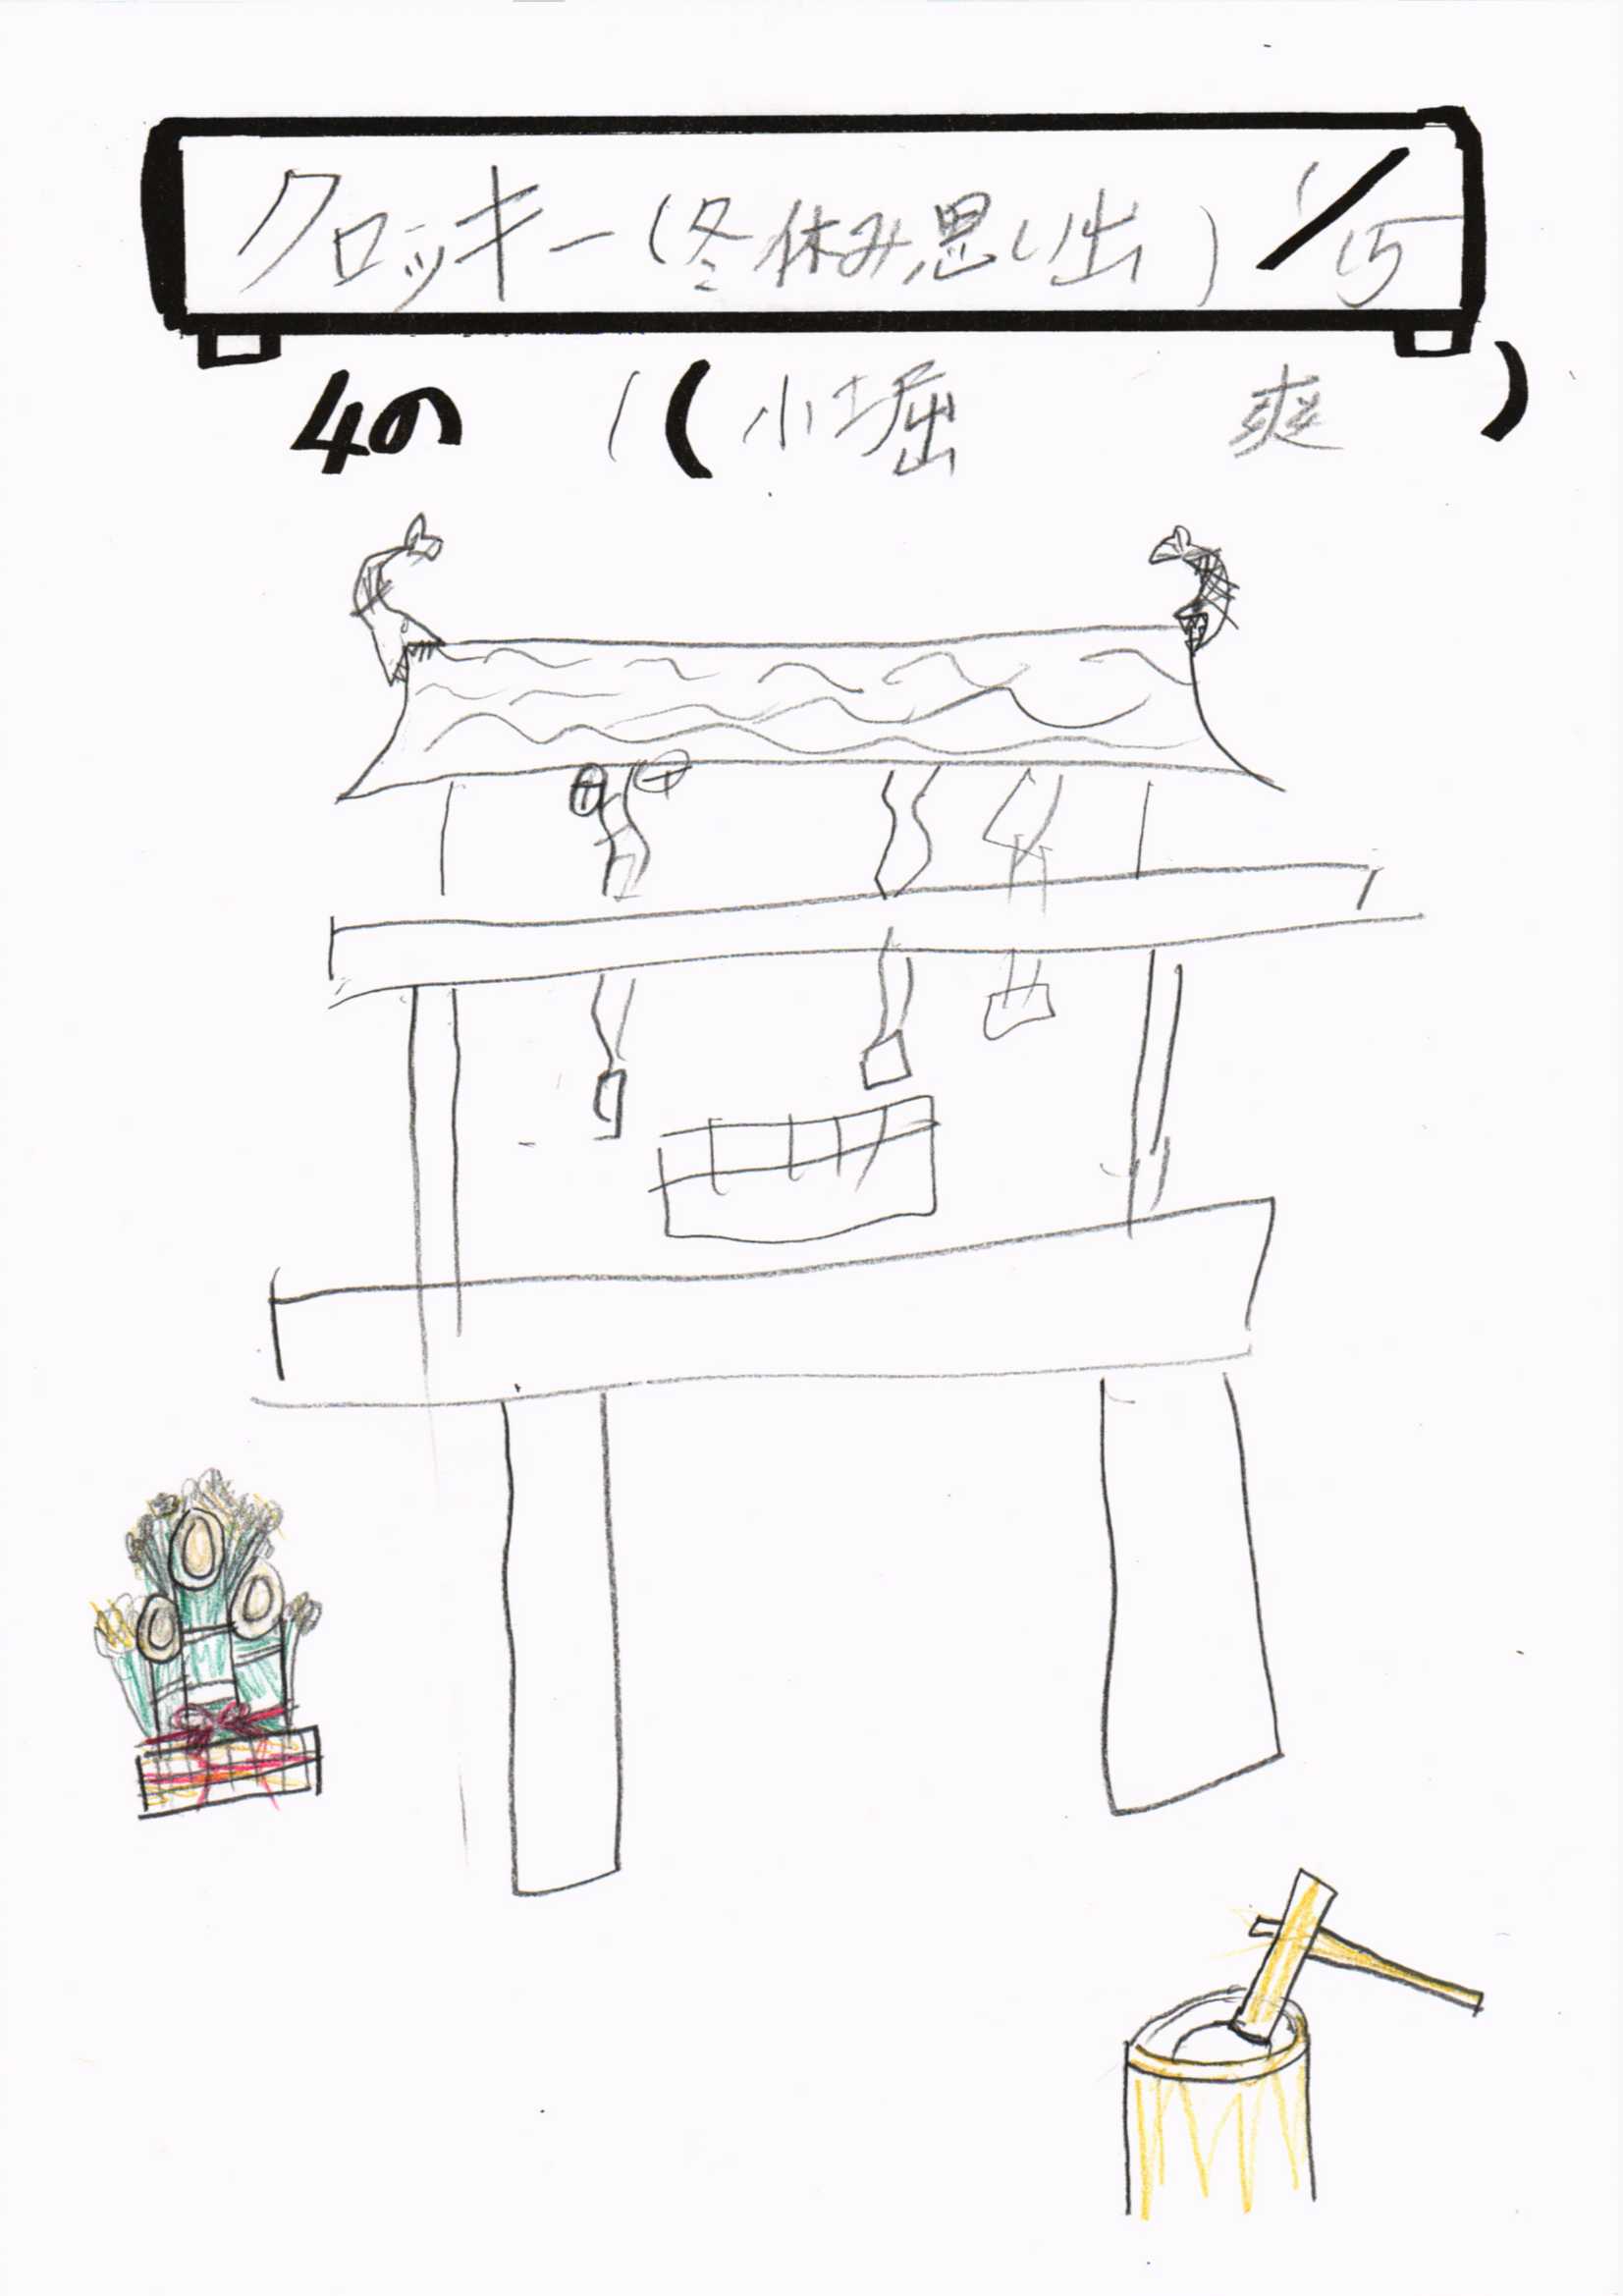 クロッキー(冬休み思い出) 1/15
4の1(小堀 爽)